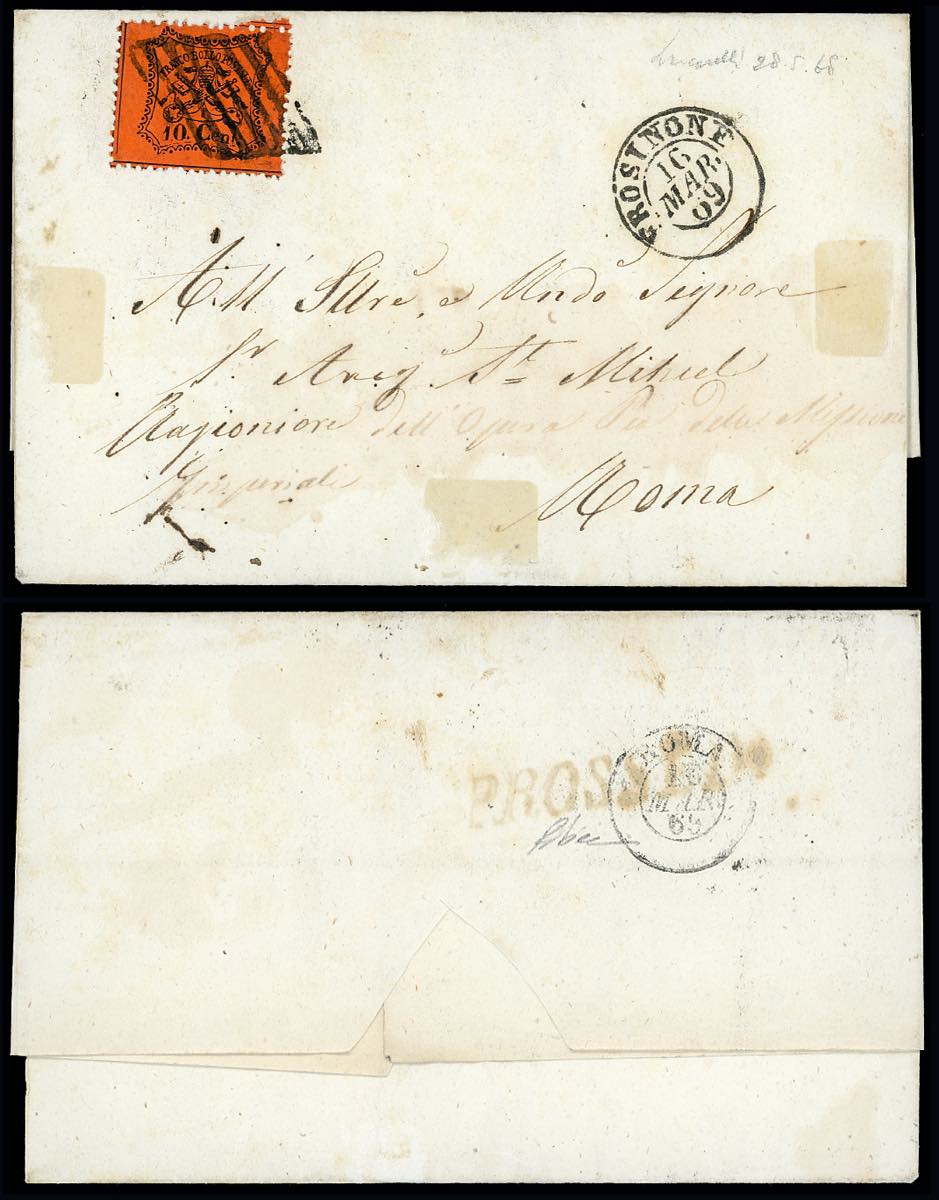 FRANCO BOLLO POSTALE
10. Cen.
28. 5. 68
FROSINONE
16
MAR.
69
All' Illre, e Undo Signore
Sr Avv St Mihiel
Ragioniere dell' Opera Pia della Missione
Imperiali
Roma
ROMA
MAR
69
PROSSEDI